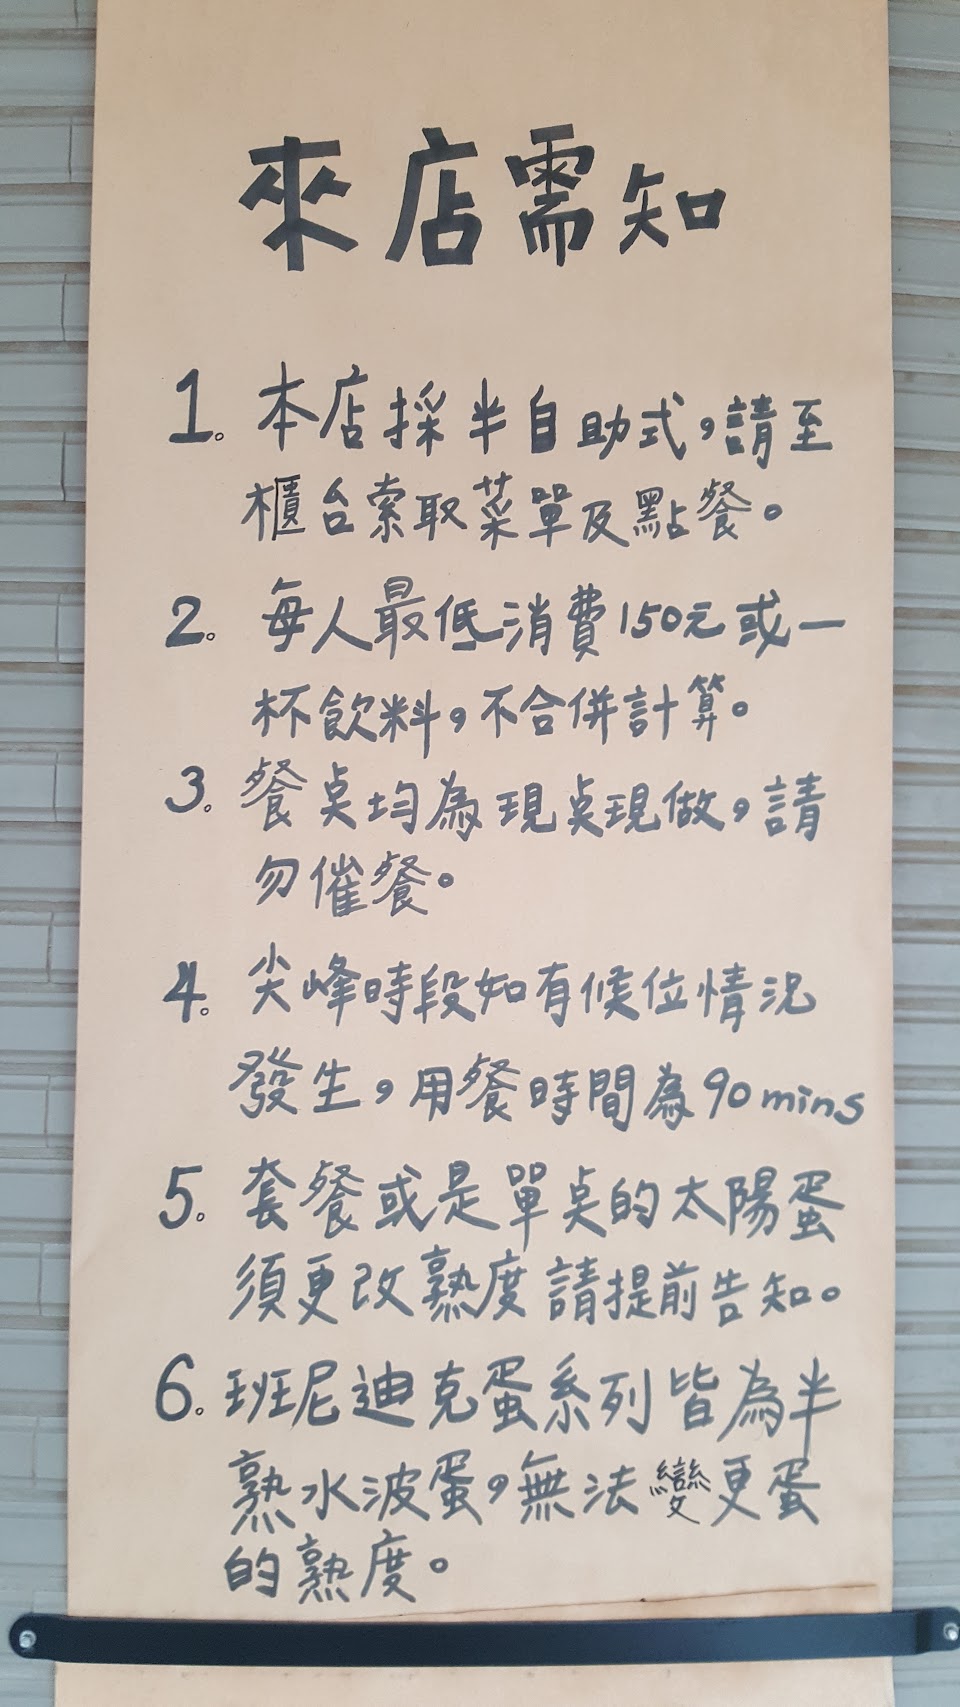 來店需知
1. 本店採半自助式,請至
櫃台索取菜單及點餐。
2. 每人最低消費150元或一
杯飲料,不合併計算。
3. 餐桌均為現桌現做,請
勿催餐。
4. 尖峰時段如有候位情況
發生,用餐時間為90mins
5. 套餐或是單桌的太陽蛋
須更改熟度請提前告知。
6. 班尼迪克蛋系列皆為半
熟水波蛋,無法變更蛋
的熟度。